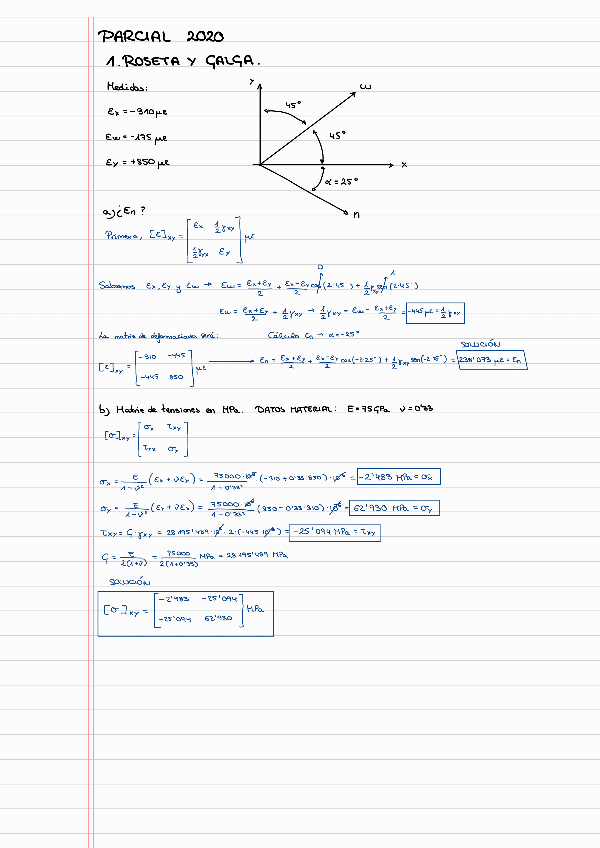 PARCIAL 2020
1. ROSETA Y GALGA.
Medidas:
Ex = -310 με
Eω = -175 με
Ey = +850 με
y
ω
45°
45°
x
α = 25°
n
a) ¿En?
Primera, [ε]xy = [Ex 1/2 γxy; 1/2 γyx Ey] με
Sabemos Ex, Ey y Eω → Eω = (Ex+Ey)/2 + (Ex-Ey)/2 cos(2·45°) + 1/2 γxy sen(2·45°)
0
1
Eω = (Ex+Ey)/2 + 1/2 γxy → 1/2 γxy = Eω - (Ex+Ey)/2 = -445 με = 1/2 γxy
La matriz de deformaciones será:
Cálculo En → α = -25°
SOLUCIÓN
[ε]xy = [-310 -445; -445 850] με → En = (Ex+Ey)/2 + (Ex-Ey)/2 cos(-2·25°) + 1/2 γxy sen(-2·25°) = 238'073 με = En
b) Matriz de tensiones en MPa. DATOS MATERIAL: E = 75 GPa ν = 0'33
[σ]xy = [σx τxy; τyx σy]
σx = E/(1-ν²) (Ex + νEy) = 75000·10⁶/(1-0'33²) (-310 + 0'33·850)·10⁻⁶ = -2'483 MPa = σx
σy = E/(1-ν²) (Ey + νEx) = 75000·10⁶/(1-0'33²) (850 - 0'33·310)·10⁻⁶ = 62'930 MPa = σy
τxy = G·γxy = 28195'489·10⁶·2·(-445·10⁻⁶) = -25'094 MPa = τxy
G = E/2(1+ν) = 75000/2(1+0'33) MPa = 28195'489 MPa
SOLUCIÓN
[σ]xy = [-2'483 -25'094; -25'094 62'930] MPa